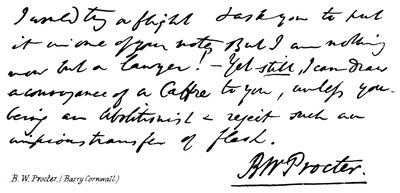 I would try a flight & ask you to put
it in one of your notes, But I am nothing
now but a lawyer! – Yet still, I can draw
a conveyance of a Caffre to you, unless you –
being an Abolitionist – reject such an
impious transfer of flesh.
B W Procter.
B. W. Procter, (Barry Cornwall.)